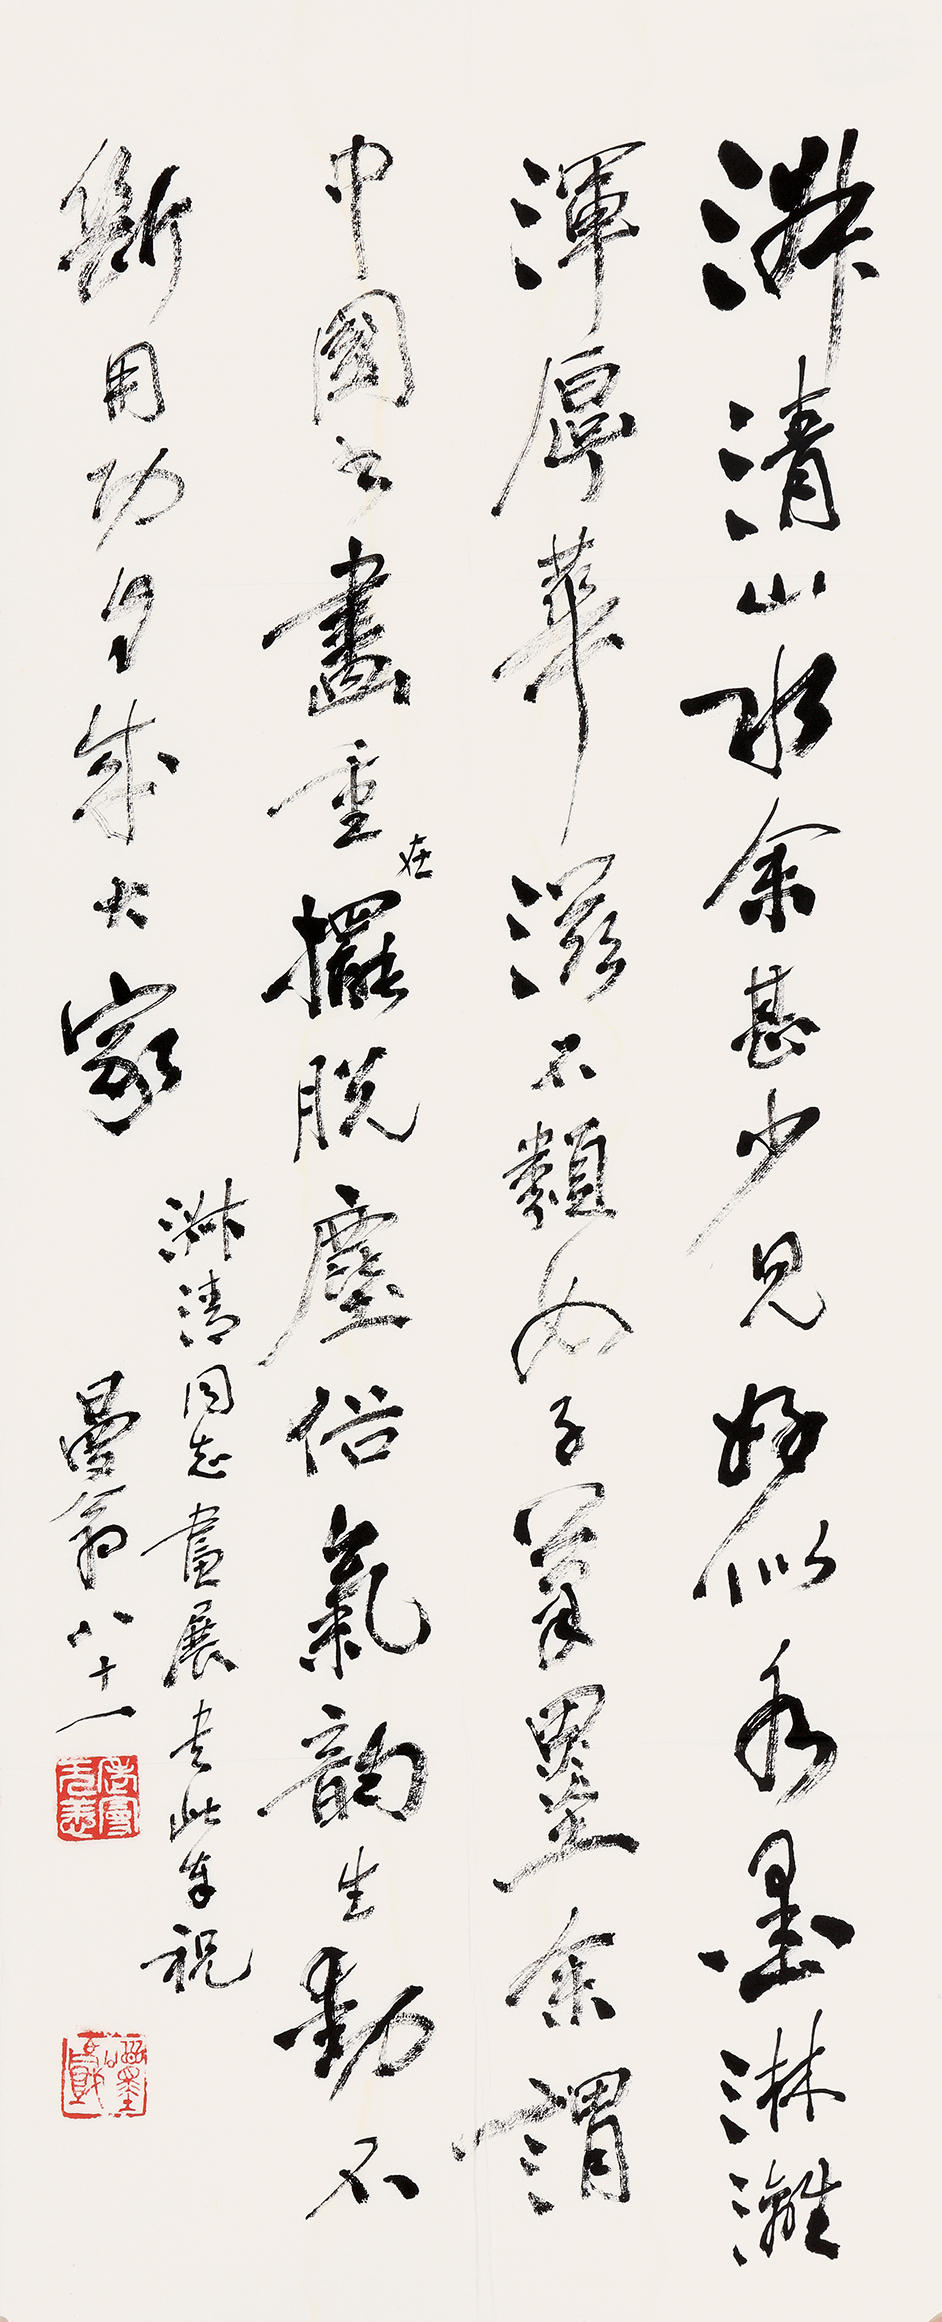 淑清山水余甚少見好似秀墨淋漓
渾厚華滋不類女子筆墨余謂
中國书畫重在擺脱塵俗氣韵生動不
斷用功自成大家
淑清同志畫展书此奉祝
曼翁八十一